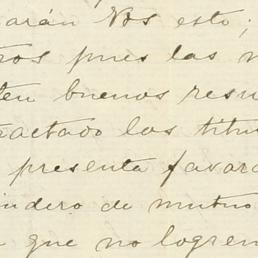 arán Nos esto;
ros pues las n
ten buenos resu
ractado los titu
presenta favora
indero de mutuo
que no logren